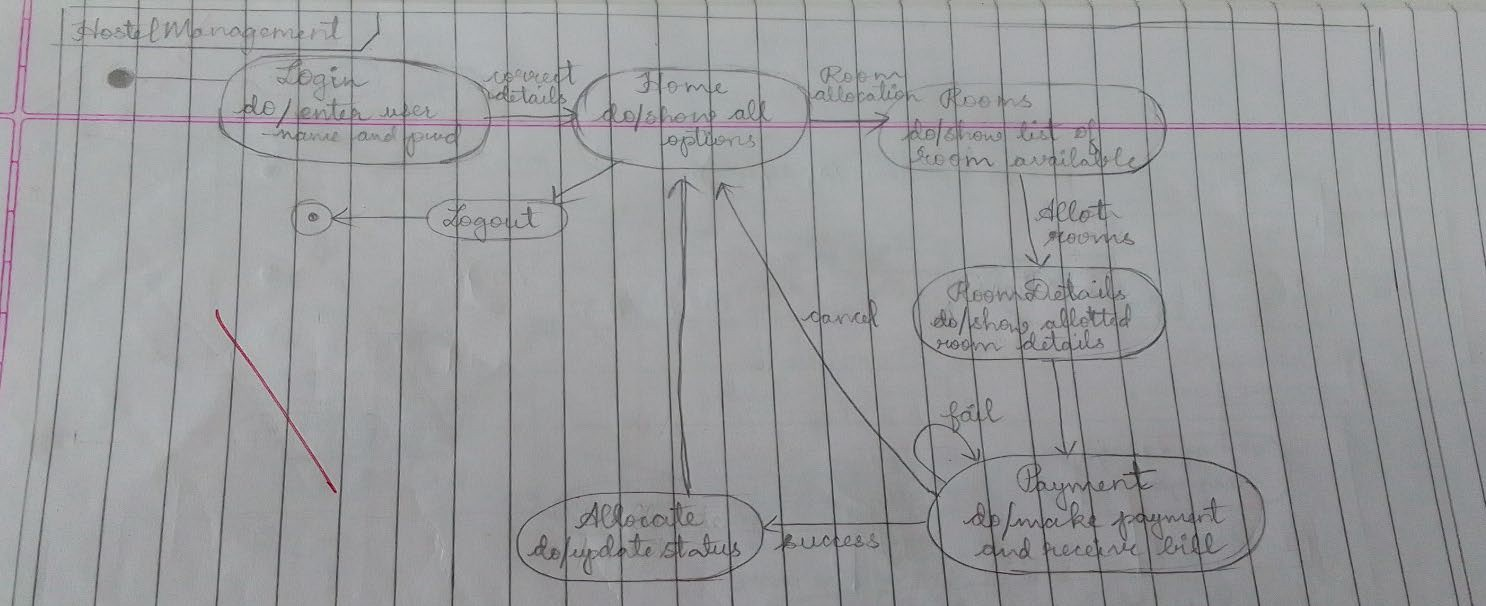 Hostel Management
Login
do/enter user
name and pwd
correct
details
Home
do/show all
options
Room
allocation
Rooms
do/show list of
room available
Logout
Allot
rooms
Room Details
do/show allotted
room details
cancel
fail
Payment
do/make payment
and receive bill
success
Allocate
do/update status